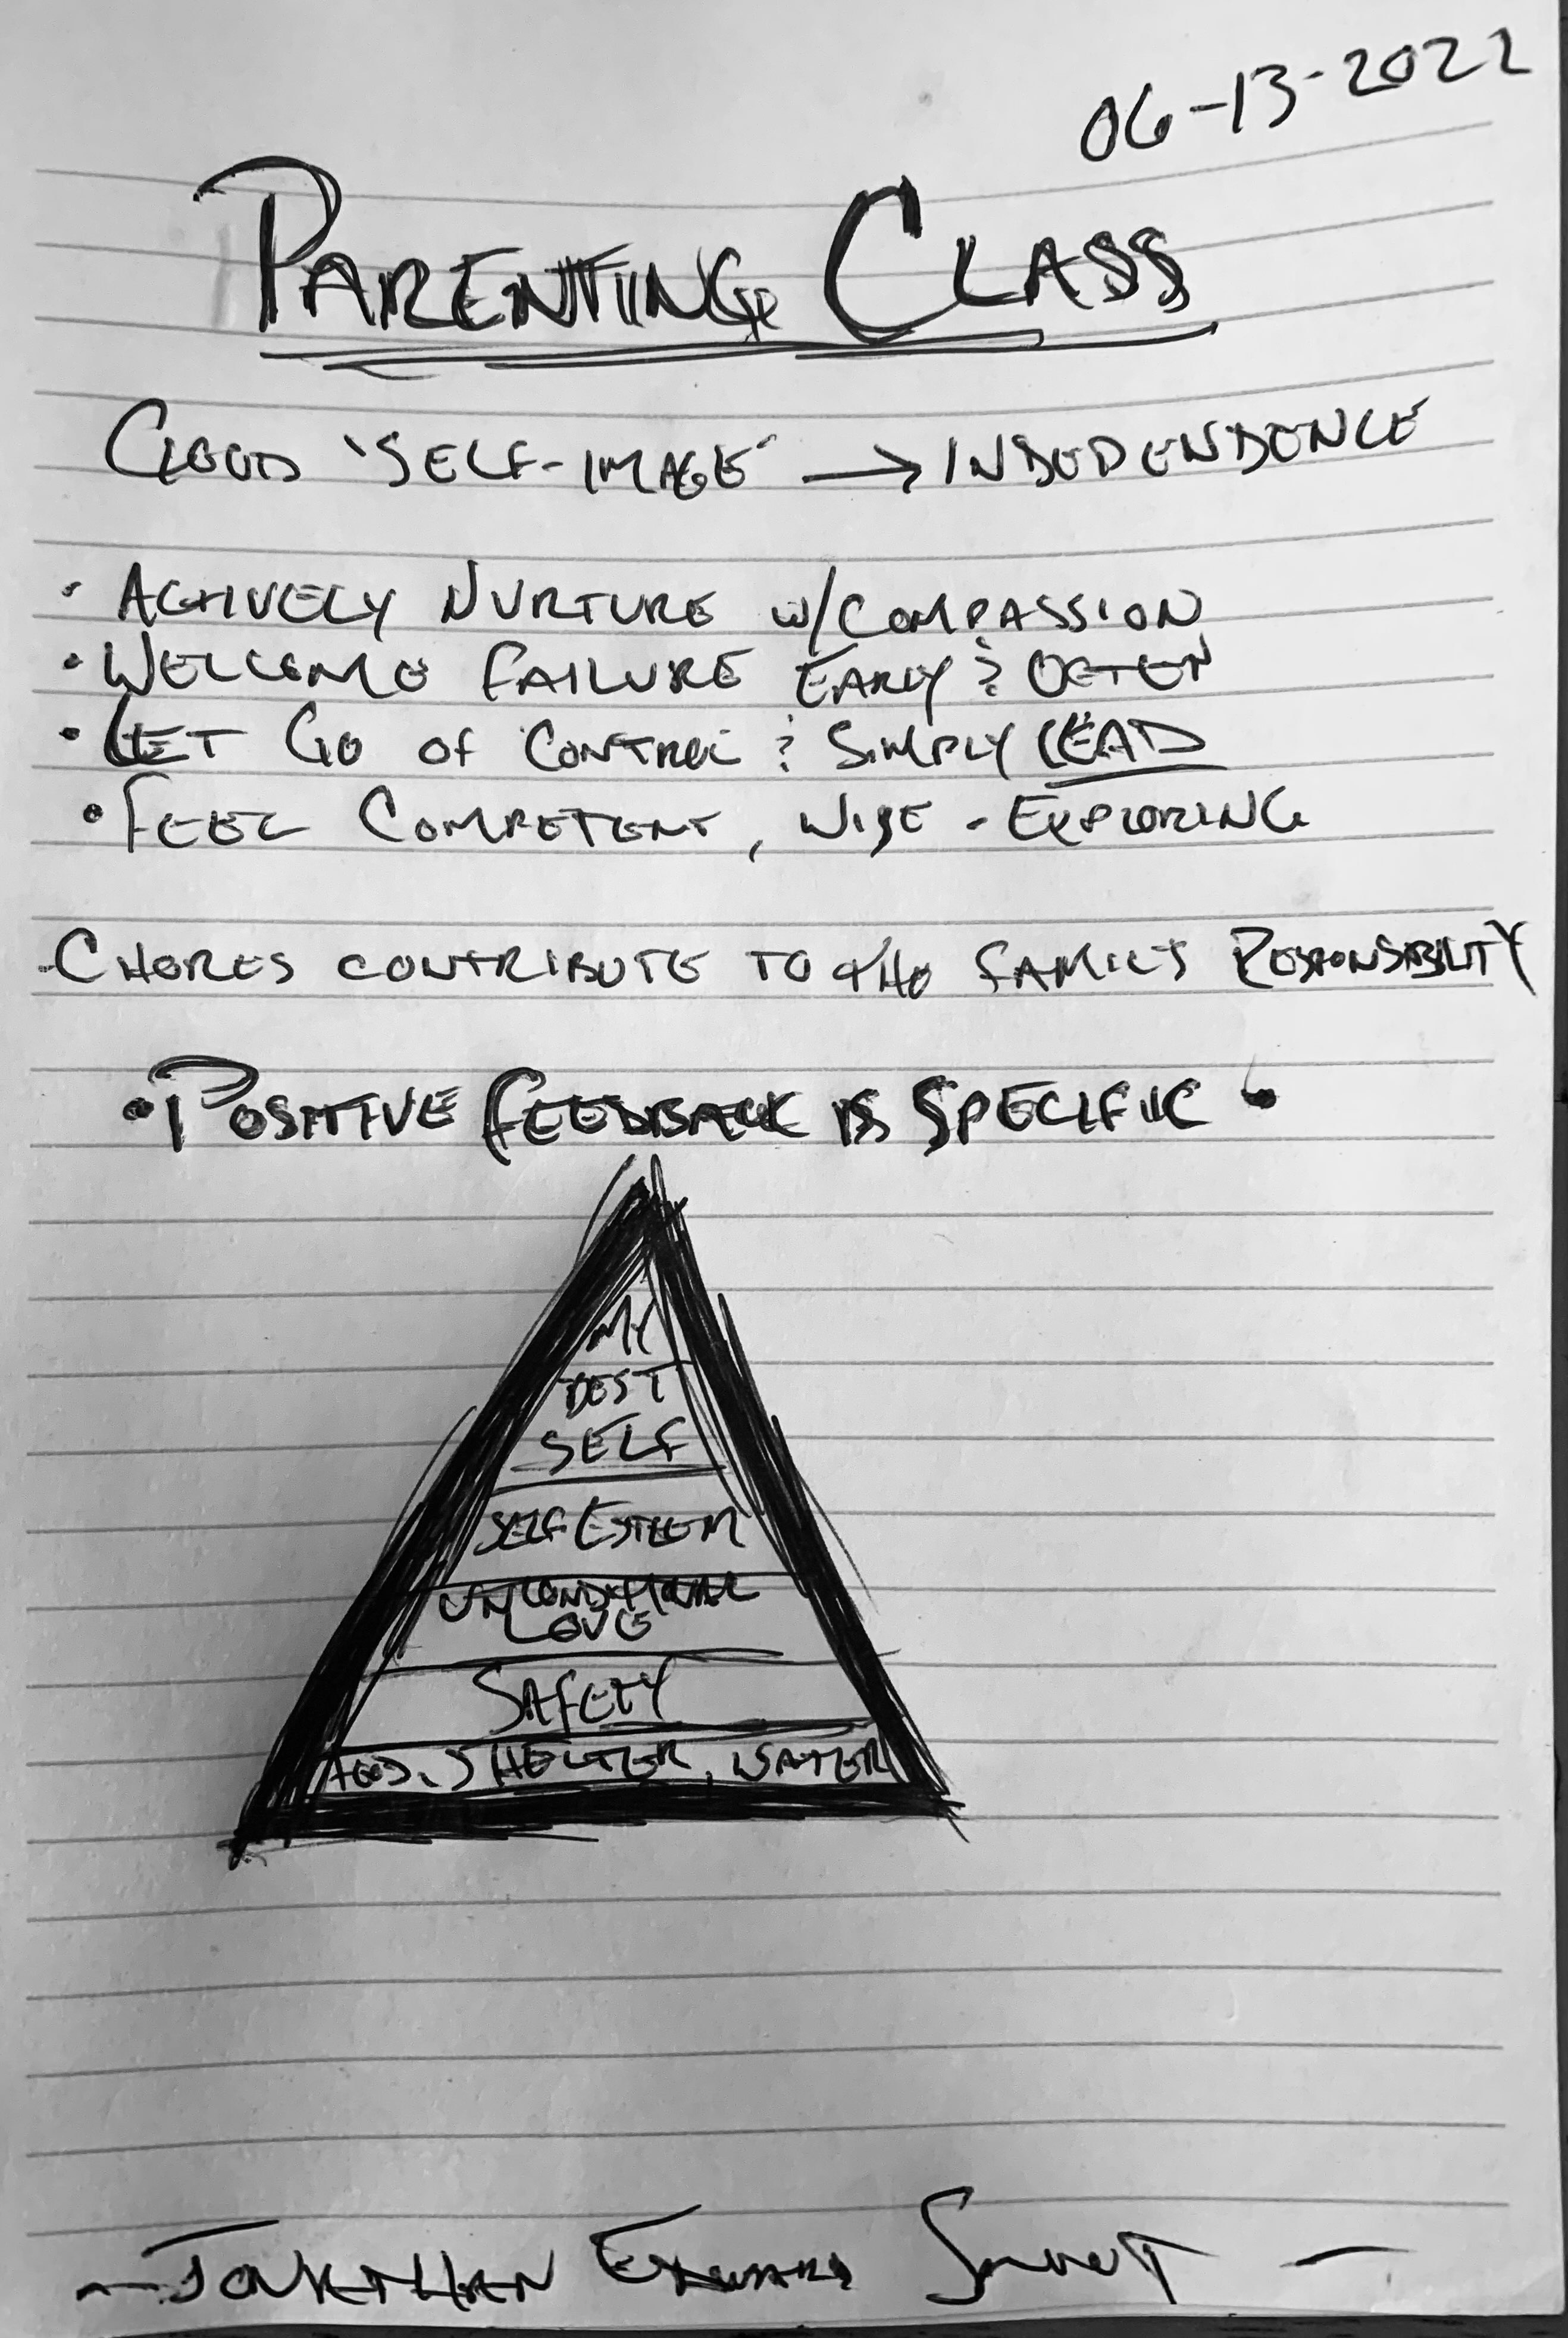 06-13-2022
PARENTING CLASS
GOOD 'SELF-IMAGE' → INDEPENDENCE
· ACTIVELY NURTURE W/COMPASSION
· WELCOME FAILURE EARLY & OFTEN
· LET GO OF CONTROL & SIMPLY LEAD
· FEEL COMPETENT, WISE - EXPLORING
CHORES CONTRIBUTE TO THE FAMILY'S RESPONSABILITY
· POSITIVE FEEDBACK IS SPECIFIC ·
MY
BEST
SELF
SELF ESTEEM
UNCONDITIONAL
LOVE
SAFETY
FOOD, SHELTER, WATER
- JONATHAN EDWARD -